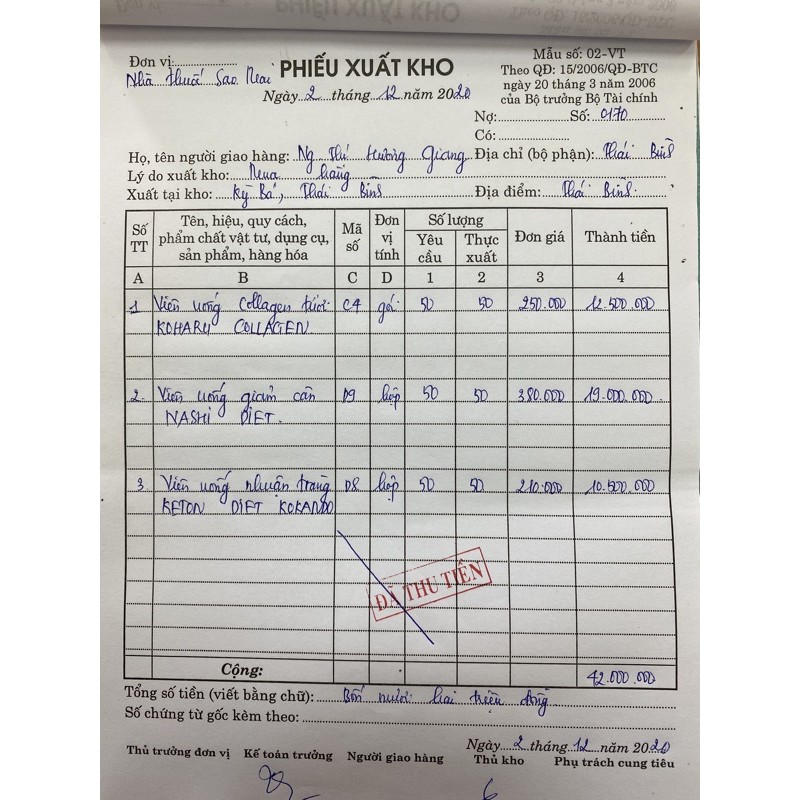 PHIẾU XUẤT KHO
Đơn vị:
Nhà thuốc Sao Mai
PHIẾU XUẤT KHO
Ngày 2 tháng 12 năm 2020
Mẫu số: 02-VT
Theo QĐ: 15/2006/QĐ-BTC
ngày 20 tháng 3 năm 2006
của Bộ trưởng Bộ Tài chính
Nợ: Số: 0170
Có:
Họ, tên người giao hàng: Ng Thị Hương Giang Địa chỉ (bộ phận): Thái Bình
Lý do xuất kho: Mua hàng
Xuất tại kho: Kỳ Bá, Thái Bình Địa điểm: Thái Bình
Số TT Tên, hiệu, quy cách, phẩm chất vật tư, dụng cụ, sản phẩm, hàng hóa Mã số Đơn vị tính Số lượng Yêu cầu Thực xuất Đơn giá Thành tiền
A B C D 1 2 3 4
1 Viên uống Collagen tươi C4 gói 50 50 250.000 12.500.000
KOHARU COLLAGEN
2. Viên uống giảm cân D9 hộp 50 50 380.000 19.000.000
NASHI DIET.
3 Viên uống nhuận tràng D8 hộp 50 50 210.000 10.500.000
KETON DIET KOKANDO
ĐÃ THU TIỀN
Cộng: 42.000.000
Tổng số tiền (viết bằng chữ): Bốn mươi hai triệu đồng
Số chứng từ gốc kèm theo:
Ngày 2 tháng 12 năm 2020
Thủ trưởng đơn vị Kế toán trưởng Người giao hàng Thủ kho Phụ trách cung tiêu